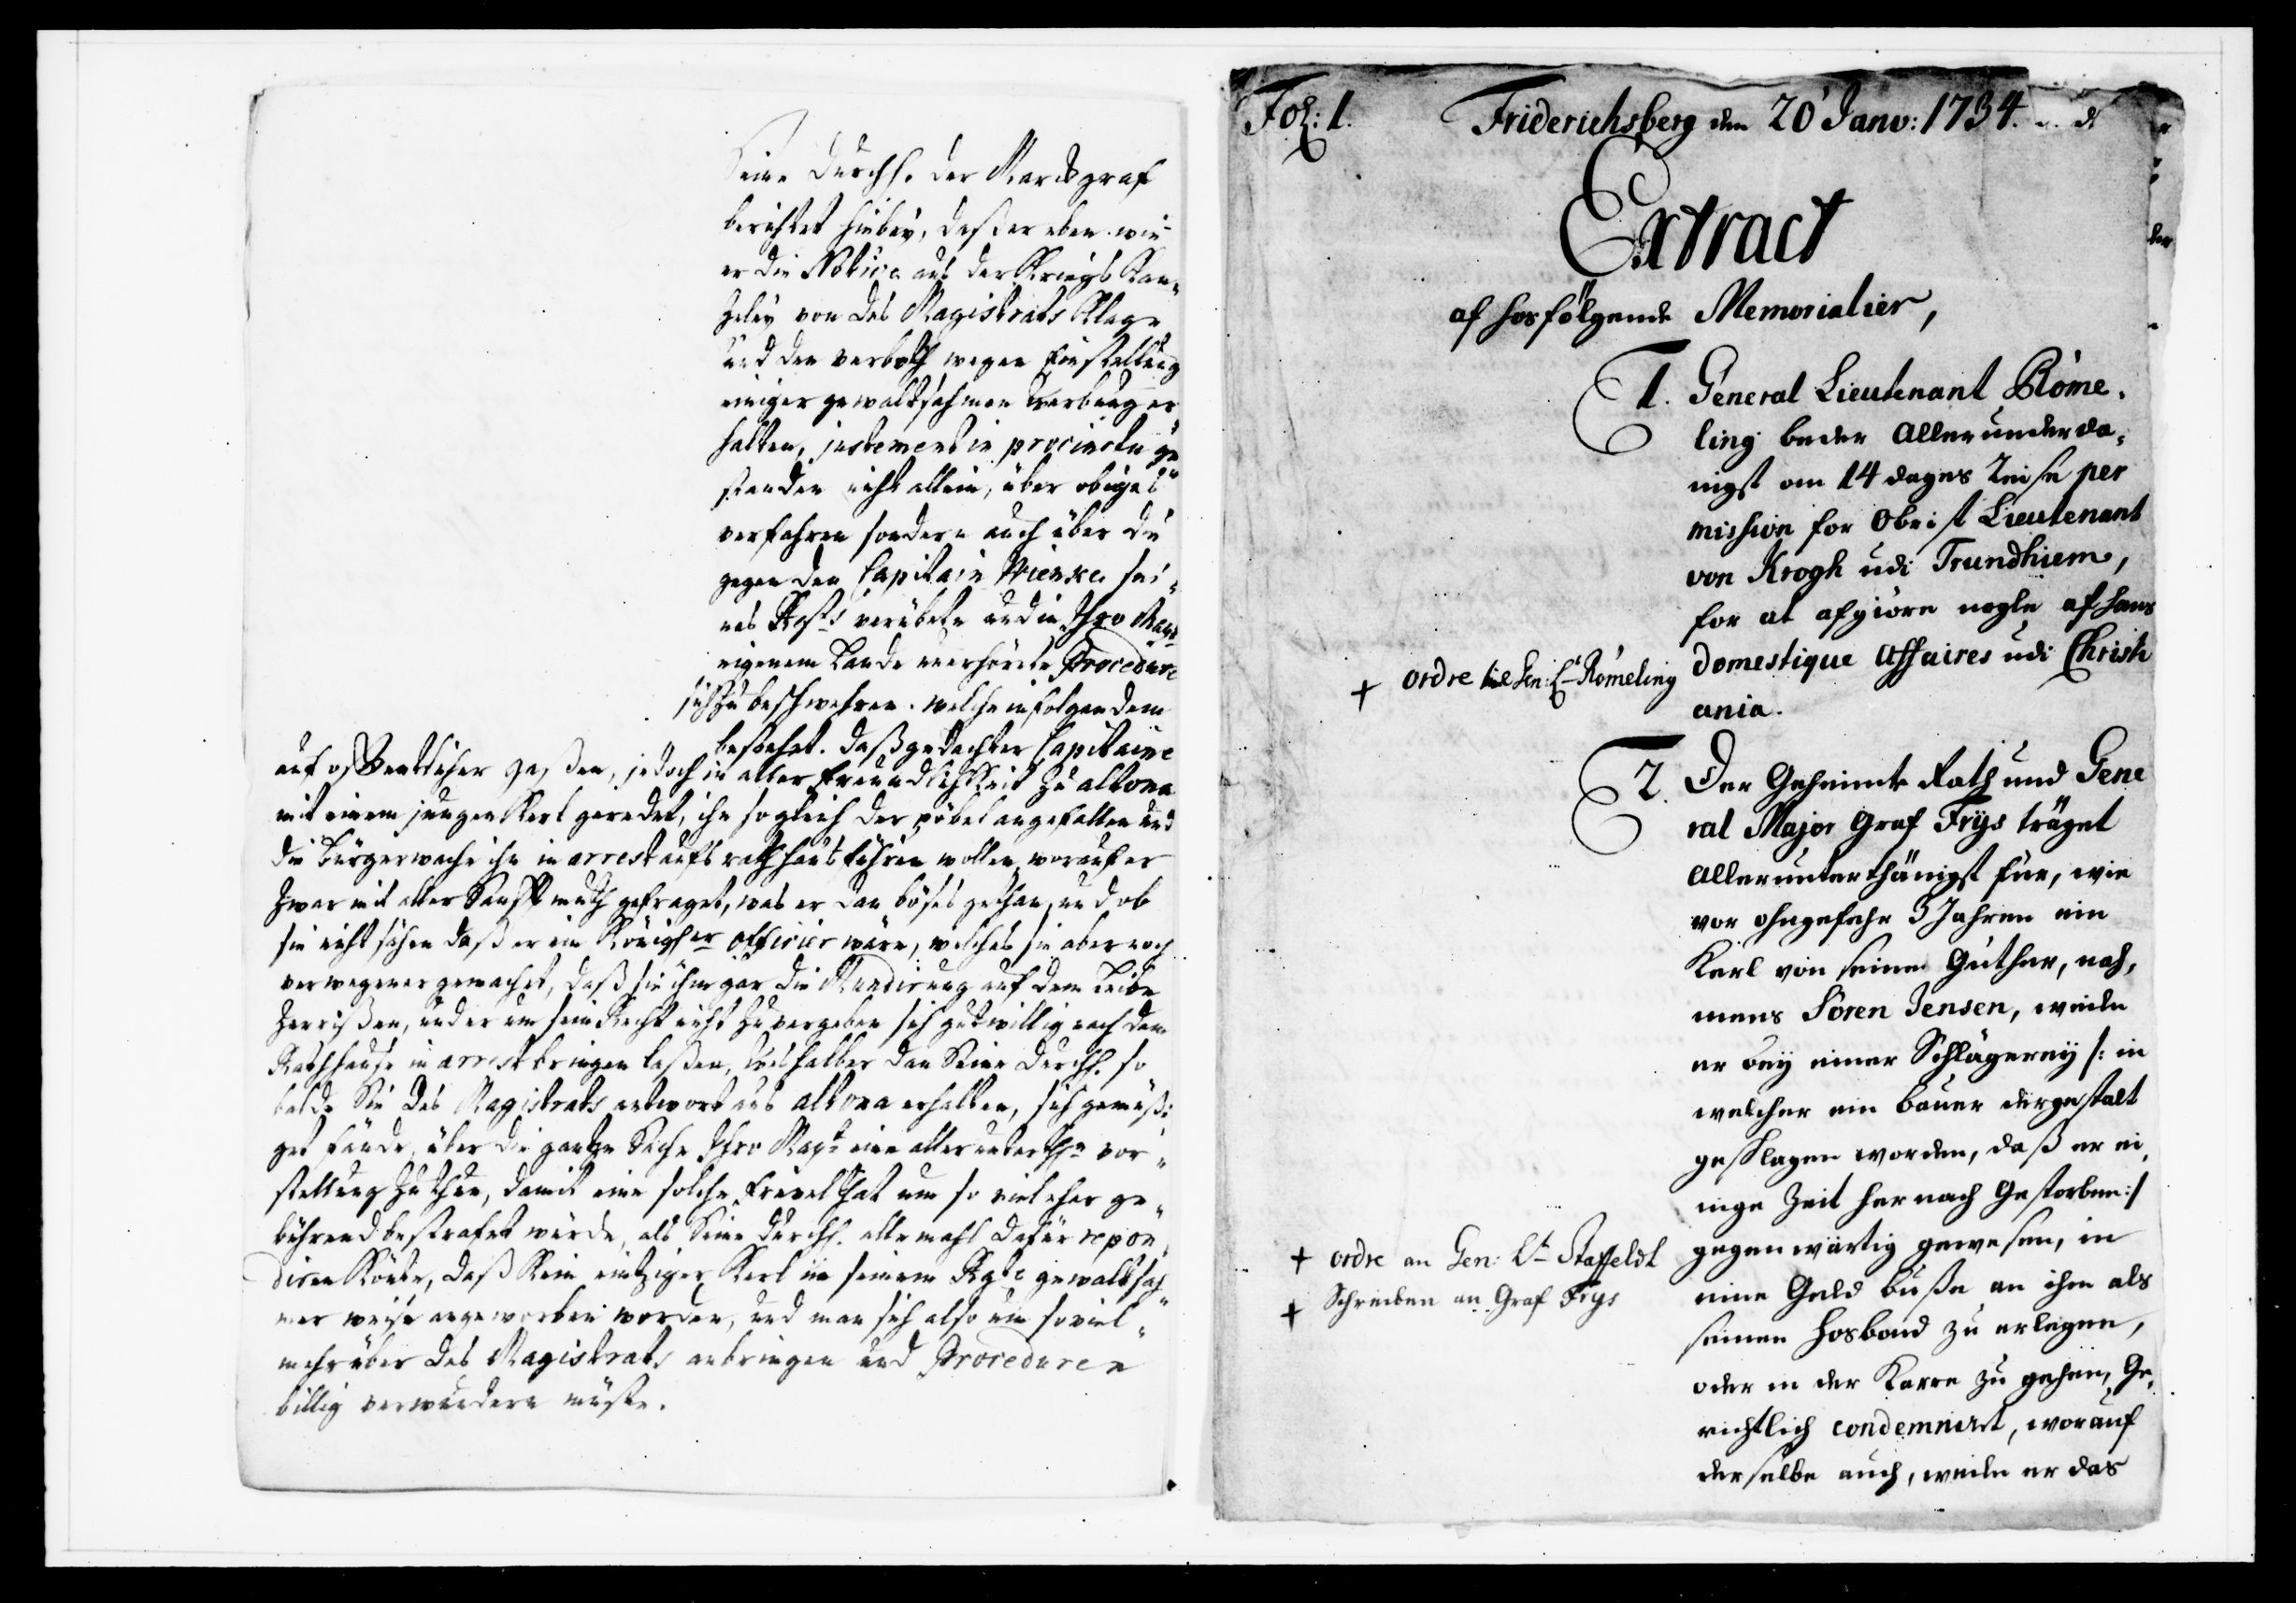 Seine Durchl. der Marckgraf
berichtet hiebey, daß er eben wie
er die Notice aus der Kriegs Kan„
zeley von des Magistrats Klage
und den verboth wegen Einstellung
einiger gewaltsahmen Werbung er
halten, justement in procinctu ge
standen nicht allein, über obiges
verfahren sondern auch über die
gegen den Capitain Wienxe sei„
nes Regts verübete und in Ihro Mayt
eigenem Lande unerhörete Procedure
sich zu beschwehren. welche in folgendem
bestehet. daß gedachter Capitaine
auf offentlicher gaßen, jedoch in aller freundlichkeit zu altona
mit einem jungen Kerl geredet, ihn sogleich der pöbel angefallen und
die bürgerwache ihn in arrest aufs rathhaus führen wollen, worauf er
zwar mit aller Sanfftmuth gefraget, was er dan böses gethan, und ob
sie nicht sehen daß er ein Königher officier wäre, welches sie aber noch
verwegener gemachet, daß sie ihm gar die Mundirung auf dem Leibe
zerrißen, und er um sein Recht nicht zu vergeben sich gutwillig nach dem
Rathhause in arrest bringen laßen, weshalber dan Seine Durchl. so
balde Sie des Magistrats antwort aus altona erhalten, sich gemüßi
get fände, über die gantze Sache Ihro Mayt eine allerunterthe vor„
stellung zu thun, damit eine solche frevelthat um so viel eher ge„
bührend bestrafet würde, als Seine Durchl. allemahl dafür repon„
diren Könte, daß Kein eintziger Kerl in seinem Regte gewaltsah
mer weise angeworben worden, und man sich also um so viel„
mehr über des Magistrats anbringen und Proceduren
billig verwundern müste.
Fol: 1. Friderichsberg den 20' Janv: 1734.
Extract
af hosfölgende Memorialier,
1. General Lieutenant Röme„
ling beder Allerunderda„
nigst om 14 dages Reise per
mission for Obrist Lieutenant
von Krogh udi Trundhiem,
for at afgiöre nogle af hans
domestique Affaires udi Christi
ania.
+ ordre til Gen: Lt Römeling
2. Der Geheimte Rath und Gene
ral Major Graf Frijs träget
Allerunterthänigst für, wie
vor ohngefehr 3 Jahren ein
Kerl von seinen Güthern, nah„
mens Sören Jensen, weile
er bey einer Schlägereij /: in
welcher ein bauer dergestalt
geschlagen worden, daß er ei„
nige Zeit hernach Gestorben:/
gegenwärtig gewesen, in
eine Geld buße an ihm als
seinen Hosbond zu erlegen,
oder in der Karre zu gehen, Ge„
richtlich condemniret, worauf
derselbe auch, weile er das
+ ordre an Gen: Lt Staffeldt
+ Schreiben an Graf Frys